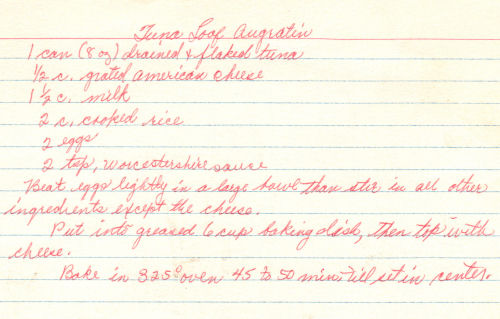 Tuna Loaf Augratin
1 can (8 oz) drained & flaked tuna
1/2 c. grated american cheese
1 1/2 c. milk
2 c. cooked rice
2 eggs
2 tsp, worcestershire sauce
Beat eggs lightly in a large bowl than stir in all other
ingredients except the cheese.
Put into greased 6 cup baking dish, then top with
cheese.
Bake in 325° oven 45 to 50 min, till set in center.